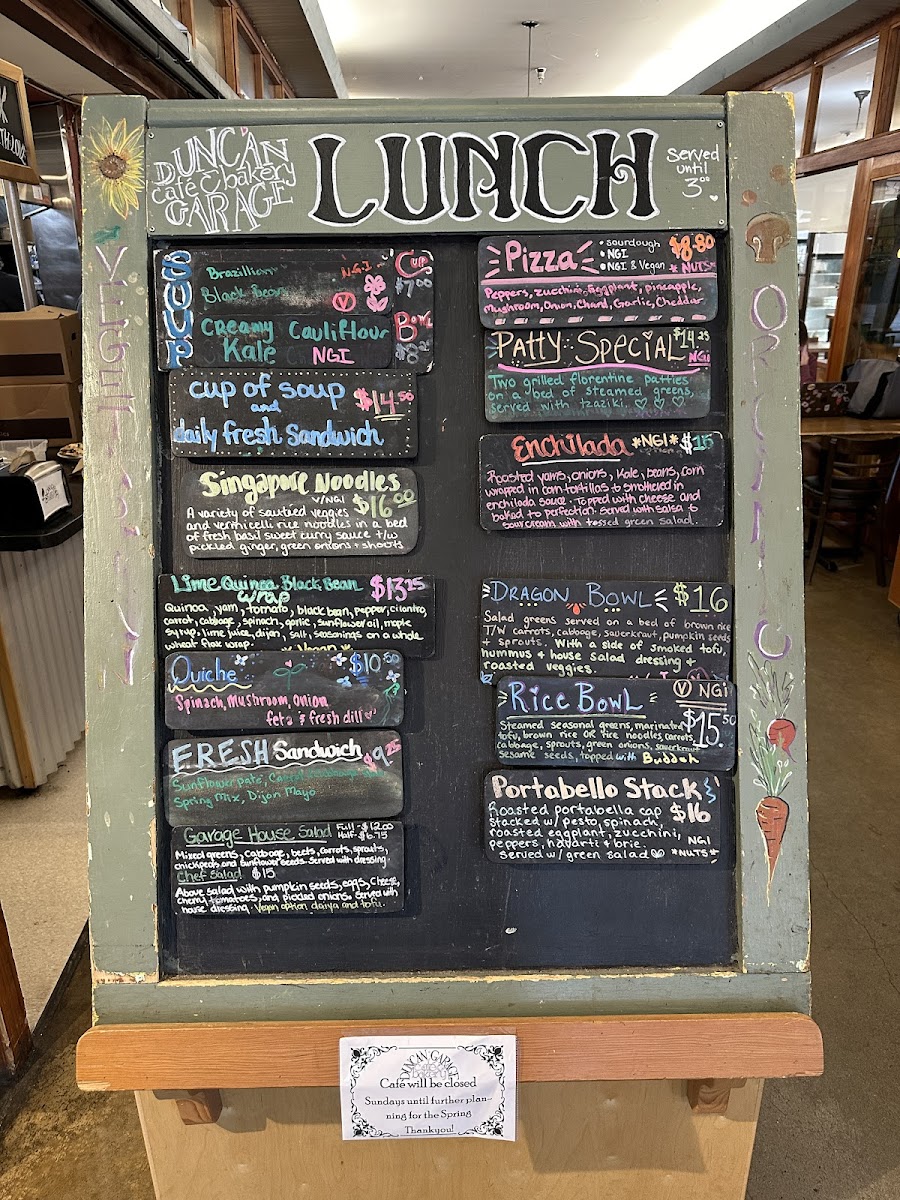 DUNCAN
café & bakery
GARAGE
LUNCH
Served
until
3⁰⁰
VEGETARIAN
ORGANIC
SOUP
Brazillian NGI
Black Bean V
Creamy Cauliflour
Kale NGI
CUP
$7.00
BOWL
cup of soup
and
daily fresh Sandwich
$14.50
Singapore Noodles
V/NGI $16.00
A variety of sautied veggies
and vermicelli rice noodles in a bed
of fresh basil sweet curry sauce t/w
pickled ginger, green onions + shoots
Lime Quinoa Black Bean $13.25
Wrap
Quinoa, yam, tomato, black bean, pepper, cilantro,
carrot, cabbage, spinach, garlic, sunflower oil, maple
syrup, lime juice, dijon, salt, seasonings on a whole
wheat flax wrap. * Vegan *
Quiche $10.50
Spinach, Mushroom, Onion
feta & fresh dill
FRESH Sandwich $9.25
Sunflower paté, Carrot, Cabbage
Spring Mix, Dijon Mayo
Garage House Salad Full-$12.00
Half-$6.75
Mixed greens, cabbage, beets, carrots, sprouts,
chickpeas, and sunflower seeds. Served with dressing.
Chef Salad $15
Above salad with pumpkin seeds, eggs, cheese,
cherry tomatoes, and pickled onions. Served with
house dressing. Vegan option daiya and tofu.
Pizza
• sourdough
• NGI
• NGI & Vegan
$8.80
* NUTS*
Peppers, zucchini, Eggplant, pineapple,
Mushroom, Onion, Chard, Garlic, Cheddar
Patty Special $14.25
NGI
Two grilled florentine patties
on a bed of steamed greens,
served with tzaziki.
Enchilada *NGI* $15
Roasted yams, onions, Kale, beans, corn
wrapped in corn tortillas & smothered in
enchilada sauce. Topped with cheese and
baked to perfection. Served with salsa &
sour cream with tossed green salad.
DRAGON BOWL $16
Salad greens served on a bed of brown rice
T/W carrots, cabbage, sauerkraut, pumpkin seeds
+ sprouts. With a side of smoked tofu,
hummus + house salad dressing +
roasted veggies.
RICE BOWL V NGI
$15.50
Steamed seasonal greens, marinated
tofu, brown rice OR rice noodles, carrots,
cabbage, sprouts, green onions, sauerkraut
Sesame seeds, topped with Buddah
Portabello Stack
$16
Roasted portabella cap
Stacked w/ pesto, spinach,
roasted eggplant, zucchini,
peppers, havarti + brie.
served w/ green salad
NGI
*NUTS*
DUNCAN GARAGE
Café will be closed
Sundays until further plan-
ning for the Spring
Thankyou!